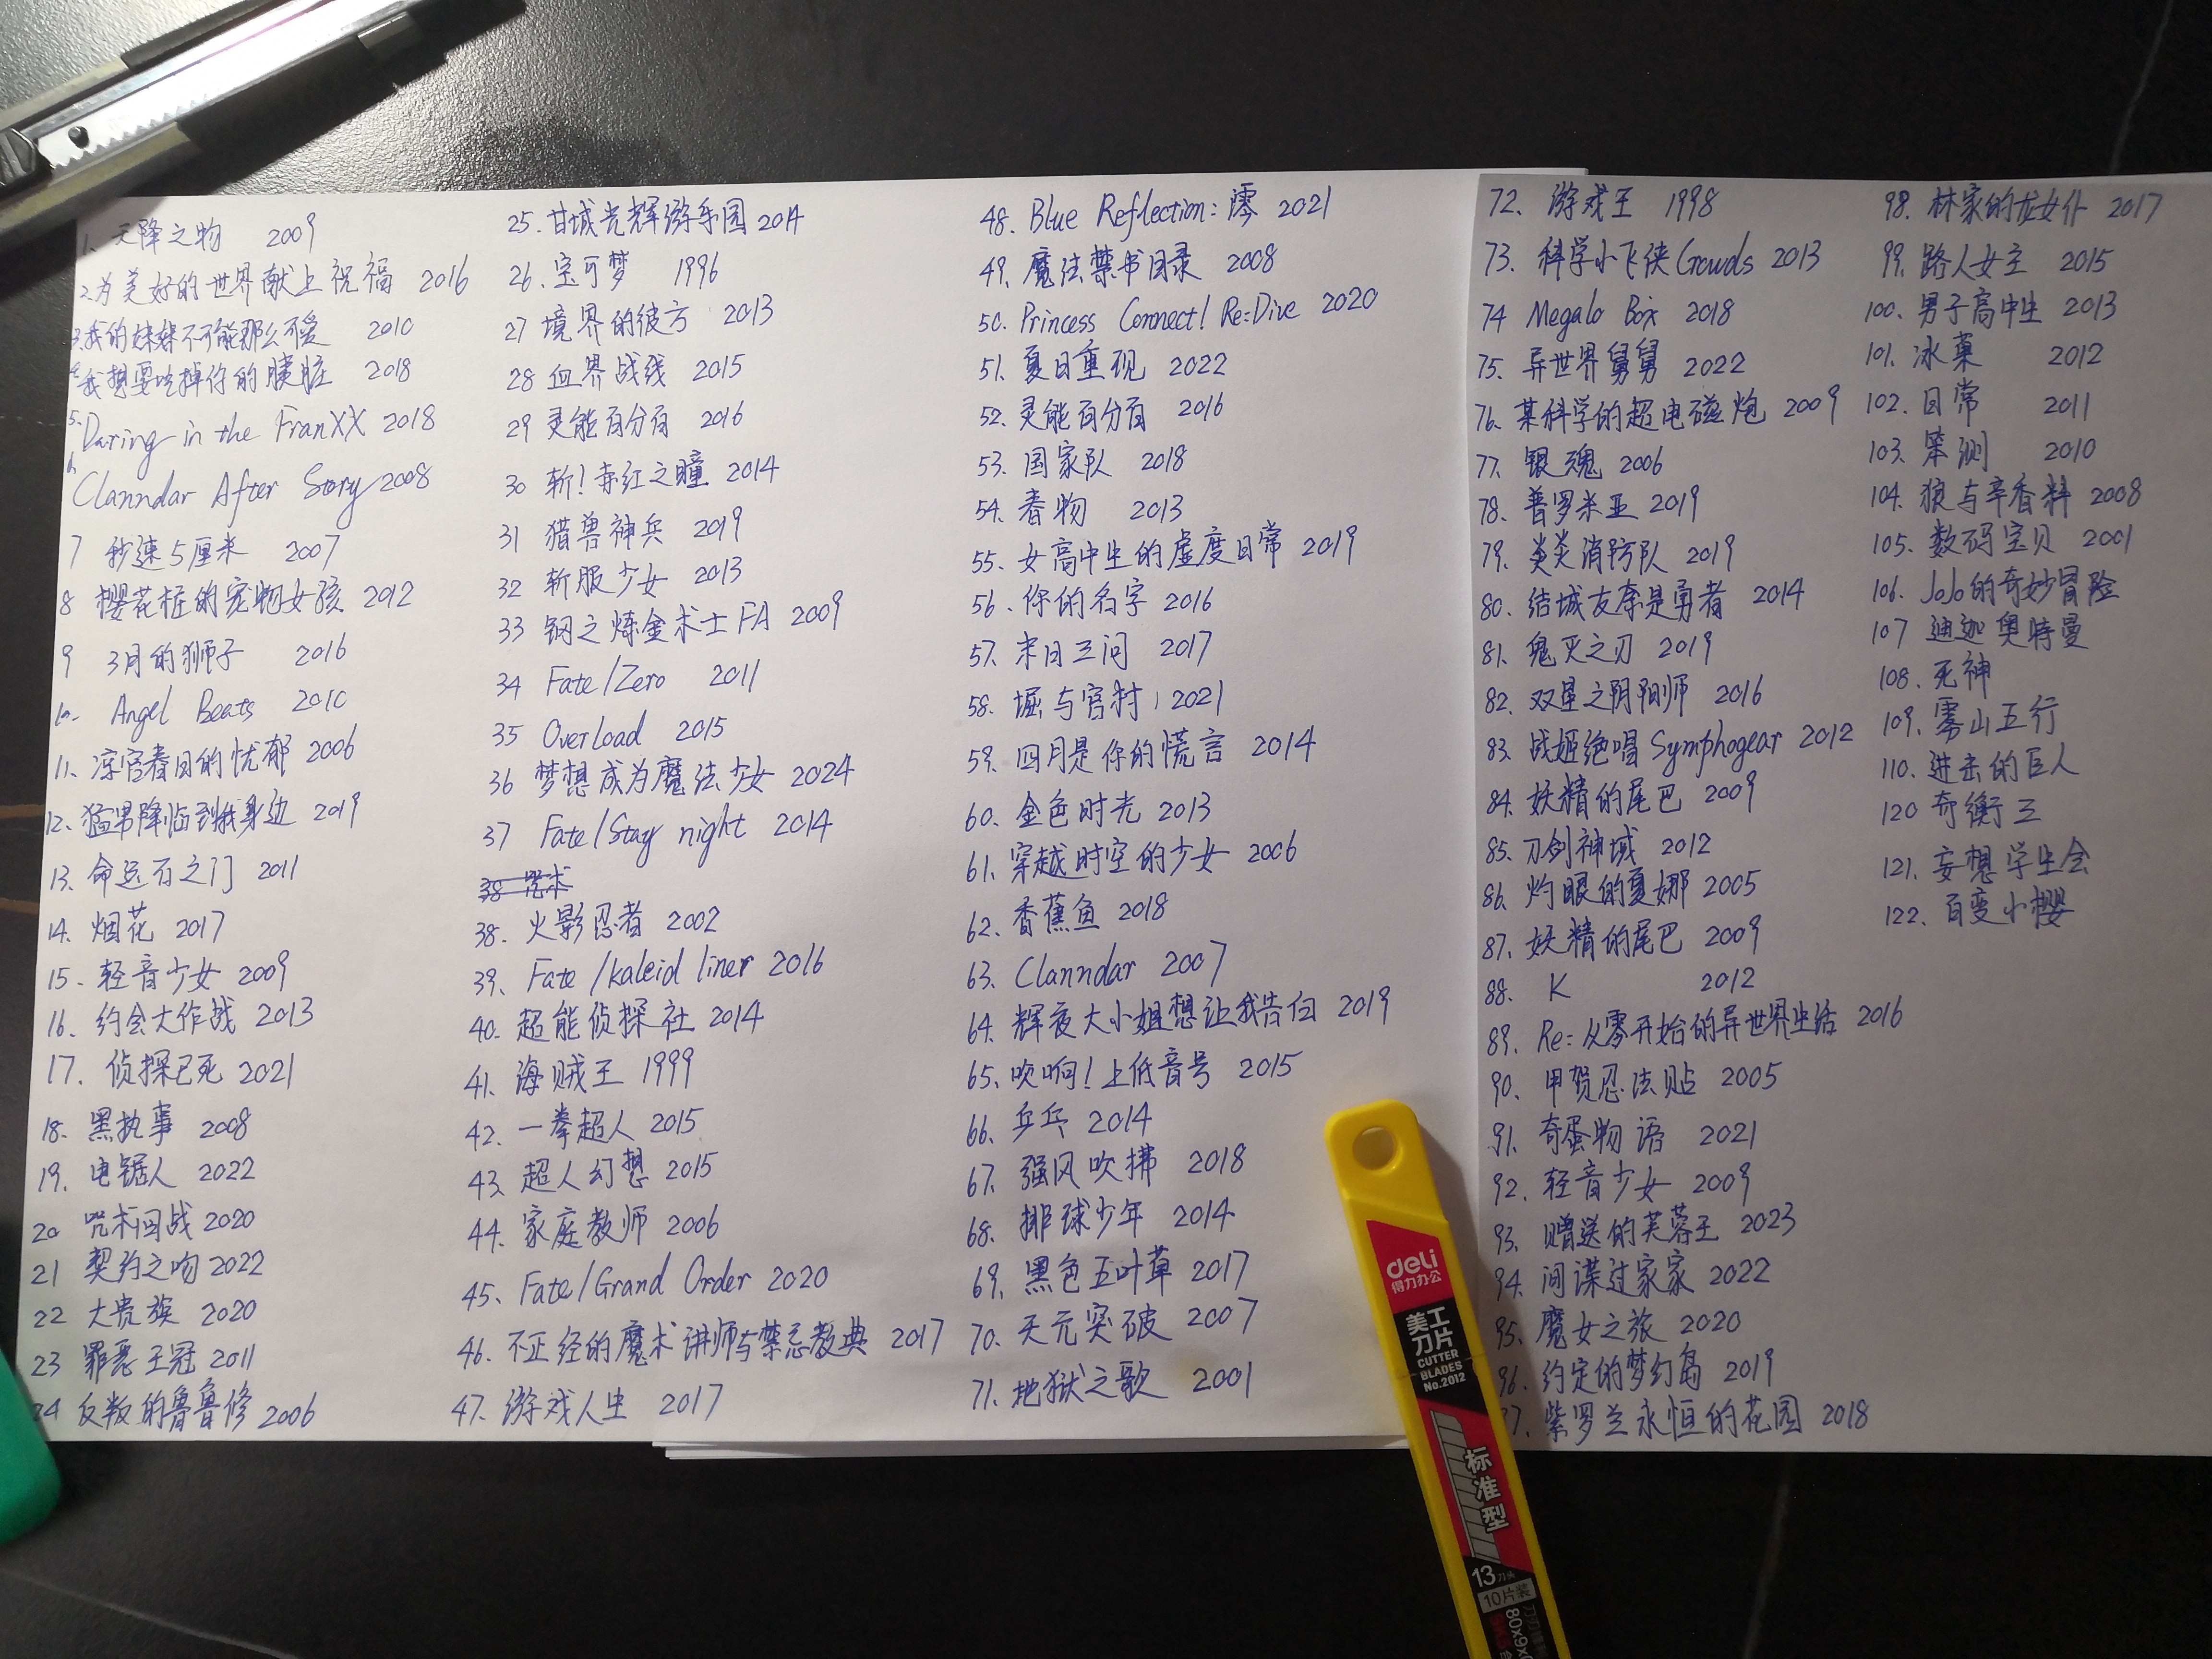 1. 天降之物 2009
2. 为美好的世界献上祝福 2016
3. 我的妹妹不可能那么可爱 2010
4. 我想要吃掉你的胰脏 2018
5. Daring in the FranXX 2018
6. Clanndar After Story 2008
7 秒速5厘米 2007
8 樱花桩的宠物女孩 2012
9 3月的狮子 2016
10. Angel Beats 2010
11. 凉宫春日的忧郁 2006
12. 猛男降临到我身边 2019
13. 命运石之门 2011
14. 烟花 2017
15. 轻音少女 2009
16. 约会大作战 2013
17. 侦探已死 2021
18. 黑执事 2008
19. 电锯人 2022
20 咒术回战 2020
21 契约之吻 2022
22 大贵族 2020
23 罪恶王冠 2011
24 反叛的鲁鲁修 2006
25. 甘城光辉游乐园 2014
26. 宝可梦 1996
27 境界的彼方 2013
28 血界战线 2015
29 灵能百分百 2016
30 斩！赤红之瞳 2014
31 猎兽神兵 2019
32 斩服少女 2013
33 钢之炼金术士FA 2009
34 Fate/Zero 2011
35 Overload 2015
36 梦想成为魔法少女 2024
37 Fate/Stay night 2014
38 咒术
38. 火影忍者 2002
39. Fate/kaleid liner 2016
40. 超能侦探社 2014
41. 海贼王 1999
42. 一拳超人 2015
43. 超人幻想 2015
44. 家庭教师 2006
45. Fate/Grand Order 2020
46. 不正经的魔术讲师与禁忌教典 2017
47. 游戏人生 2017
48. Blue Reflection：澪 2021
49. 魔法禁书目录 2008
50. Princess Connect! Re:Dive 2020
51. 夏日重现 2022
52. 灵能百分百 2016
53. 国家队 2018
54. 春物 2013
55. 女高中生的虚度日常 2019
56. 你的名字 2016
57. 末日三问 2017
58. 堀与宫村 2021
59. 四月是你的谎言 2014
60. 金色时光 2013
61. 穿越时空的少女 2006
62. 香蕉鱼 2018
63. Clanndar 2007
64. 辉夜大小姐想让我告白 2019
65. 吹响！上低音号 2015
66. 乒乓 2014
67. 强风吹拂 2018
68. 排球少年 2014
69. 黑色五叶草 2017
70. 天元突破 2007
71. 地狱之歌 2001
72. 游戏王 1998
73. 科学小飞侠Crowds 2013
74 Megalo Box 2018
75. 异世界舅舅 2022
76. 某科学的超电磁炮 2009
77. 银魂 2006
78. 普罗米亚 2019
79. 炎炎消防队 2019
80. 结城友奈是勇者 2014
81. 鬼灭之刃 2019
82. 双星之阴阳师 2016
83. 战姬绝唱Symphogear 2012
84. 妖精的尾巴 2009
85. 刀剑神域 2012
86. 灼眼的夏娜 2005
87. 妖精的尾巴 2009
88. K 2012
89. Re：从零开始的异世界生活 2016
90. 甲贺忍法贴 2005
91. 奇蛋物语 2021
92. 轻音少女 2009
93. 赠送的芙蓉王 2023
94. 间谍过家家 2022
95. 魔女之旅 2020
96. 约定的梦幻岛 2019
97. 紫罗兰永恒的花园 2018
98. 林家的龙女仆 2017
99. 路人女主 2015
100. 男子高中生 2013
101. 冰菓 2012
102. 日常 2011
103. 笨测 2010
104. 狼与辛香料 2008
105. 数码宝贝 2001
106. JoJo的奇妙冒险
107 迪迦奥特曼
108. 死神
109. 雾山五行
110. 进击的巨人
120 奇衡三
121. 妄想学生会
122. 百变小樱
deli
得力办公
美工
刀片
CUTTER
BLADES
No.2012
标准型
13刀片
10片装